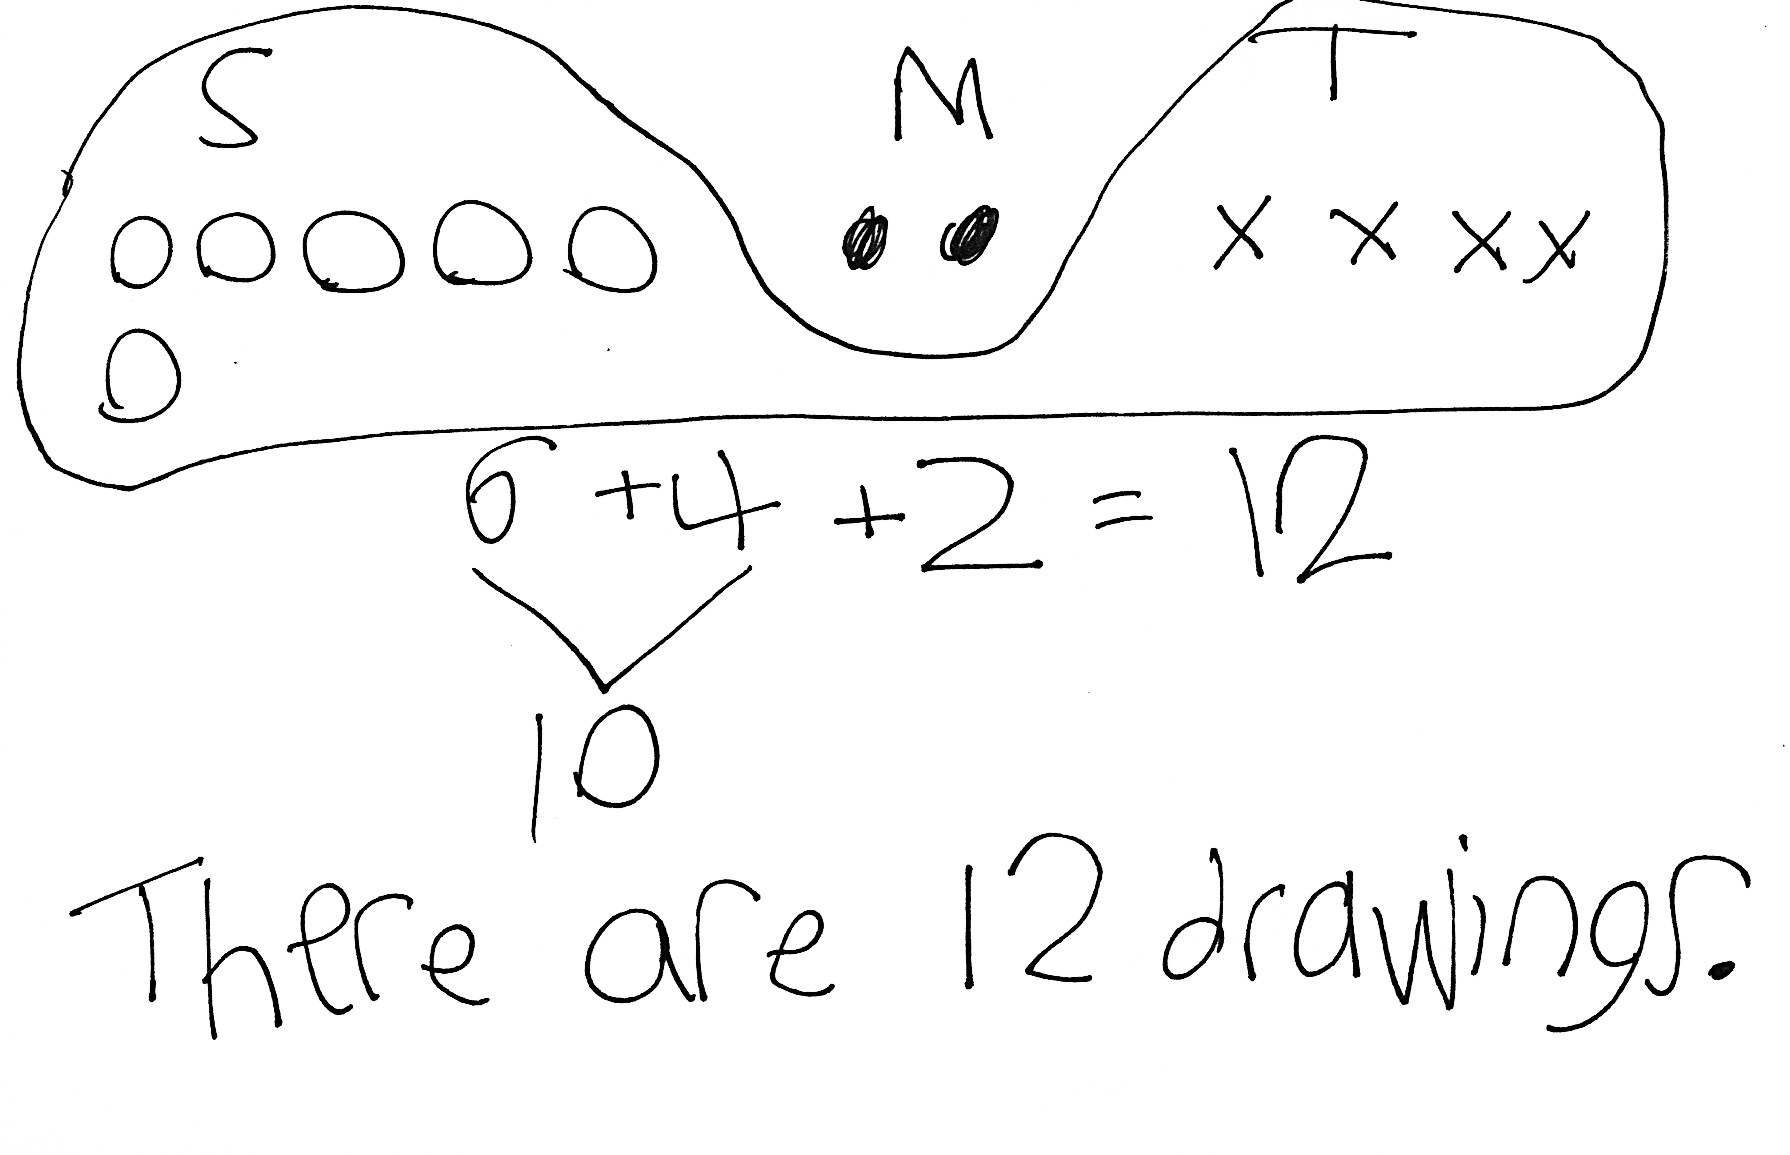 S M T
x x x x
6 + 4 + 2 = 12
10
There are 12 drawings.